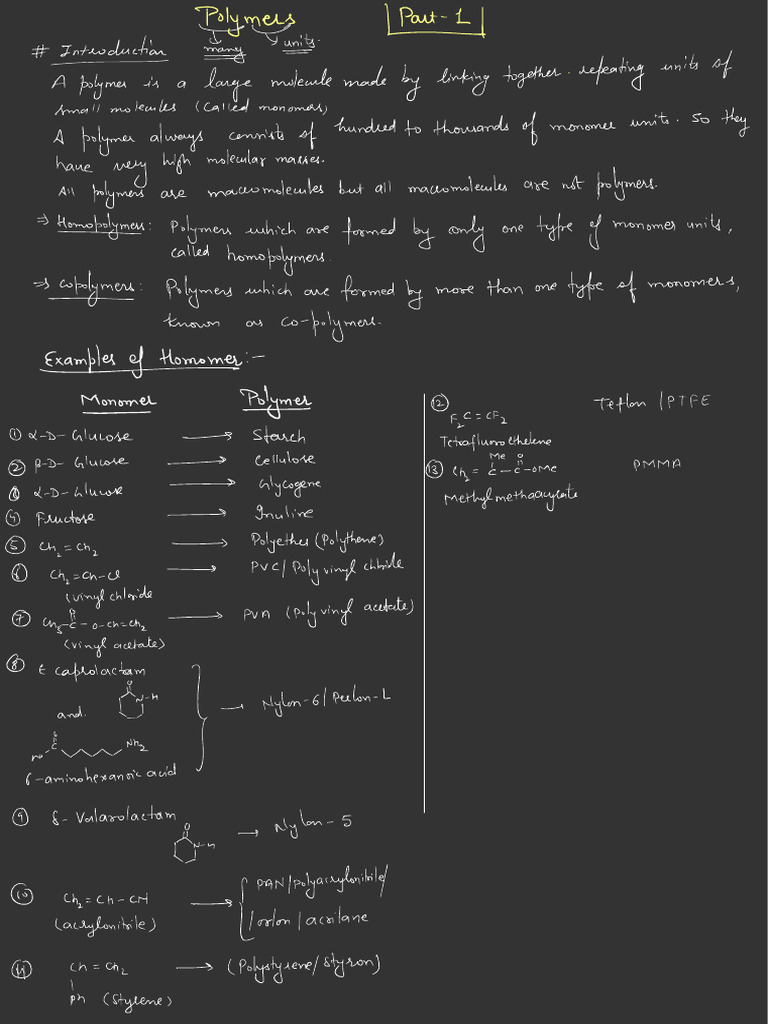 Polymers
Part-1
many units.
# Introduction
A polymer is a large molecule made by linking together. repeating units of
small molecules (called monomers)
A polymer always consists of hundred to thousands of monomer units. So they
have very high molecular masses.
All polymers are macromolecules but all macromolecules are not polymers.
⇒ Homopolymers: Polymers which are formed by only one type of monomer units,
called homopolymers.
⇒ copolymers: Polymers which are formed by more than one type of monomers,
known as co-polymers.
Examples of Homomer:-
Monomer Polymer
① α-D-Glucose → Starch
② β-D-Glucose → Cellulose
③ α-D-Glucose → Glycogene
④ Fructose → Inuline
⑤ CH₂=CH₂ → Polyethes (Polythene)
⑥ CH₂=CH-Cl → PVC/Poly vinyl chloride
(vinyl chloride
⑦ CH₃-C-O-CH=CH₂ → PVA (Poly vinyl acetate)
O
(vinyl acetate)
⑧ ε caprolactam
O
N-H
and.
→ Nylon-6/Perlon-L
O
HO C NH₂
6-aminohexanoic acid
⑨ δ-Valarolactam
O
N-H → Nylon-5
⑩ CH₂=CH-CN → PAN/Polyacrylonitrile/
(acrylonitrile) /orlon/acrilane
⑪ CH=CH₂ → (Polystyrene/Styron)
Ph (Styrene)
⑫ F₂C=CF₂ Teflon/PTFE
Tetrafluoroethelene
Me O
⑬ CH₂=C-C-OMe PMMA
Methylmethacrylate